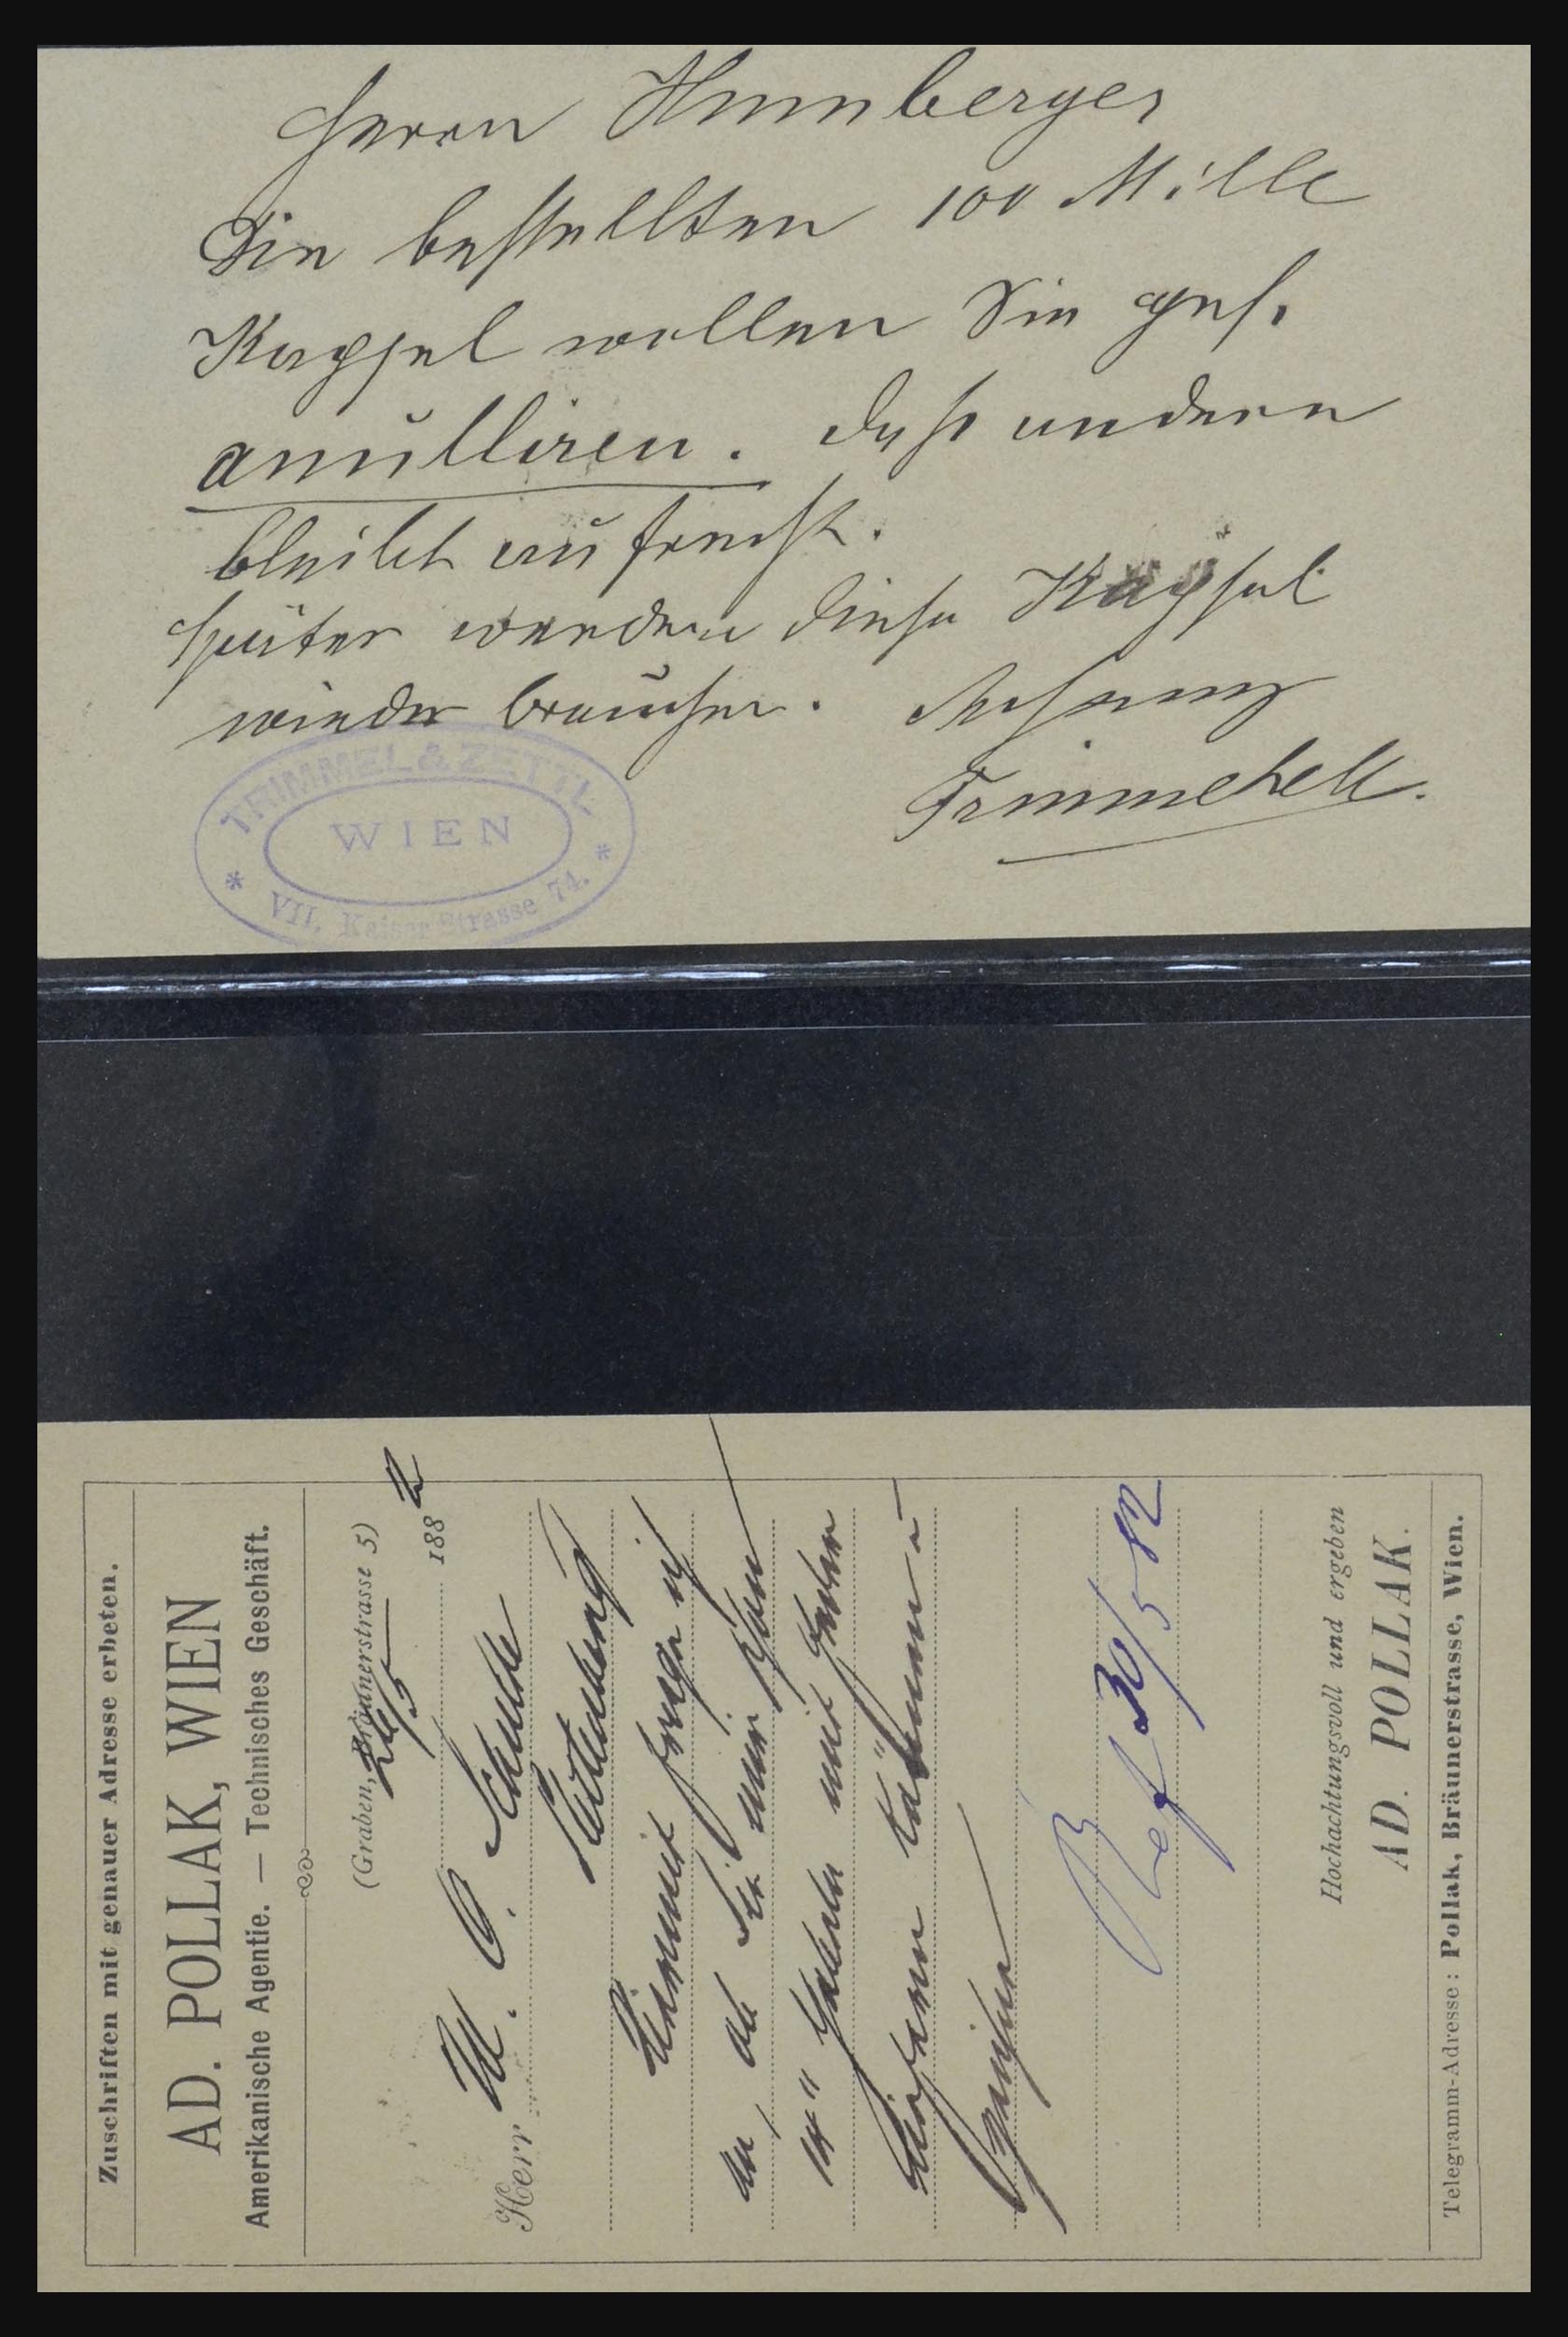 Herrn
Die bestellten 100 Mille
Kapsel wollen Sie gefl.
anulliren. Das andere
bleibt aufrecht.
Später werden diese Kapsel
wieder brauchen. Achtung
TRIMMEL & ZETTL
WIEN
* VII. Kaiser Strasse 74. *
Zuschriften mit genauer Adresse erbeten.
AD. POLLAK, WIEN
Amerikanische Agentie. — Technisches Geschäft.
(Graben, Bräunerstrasse 5)
26/5 1882
Herr W. O. Schulte
Hiermit frage ich
an, ob Sie mir
14" mit
können u
Ref 30/5 82
Hochachtungsvoll und ergeben
AD. POLLAK.
Telegramm-Adresse: Pollak, Bräunerstrasse, Wien.